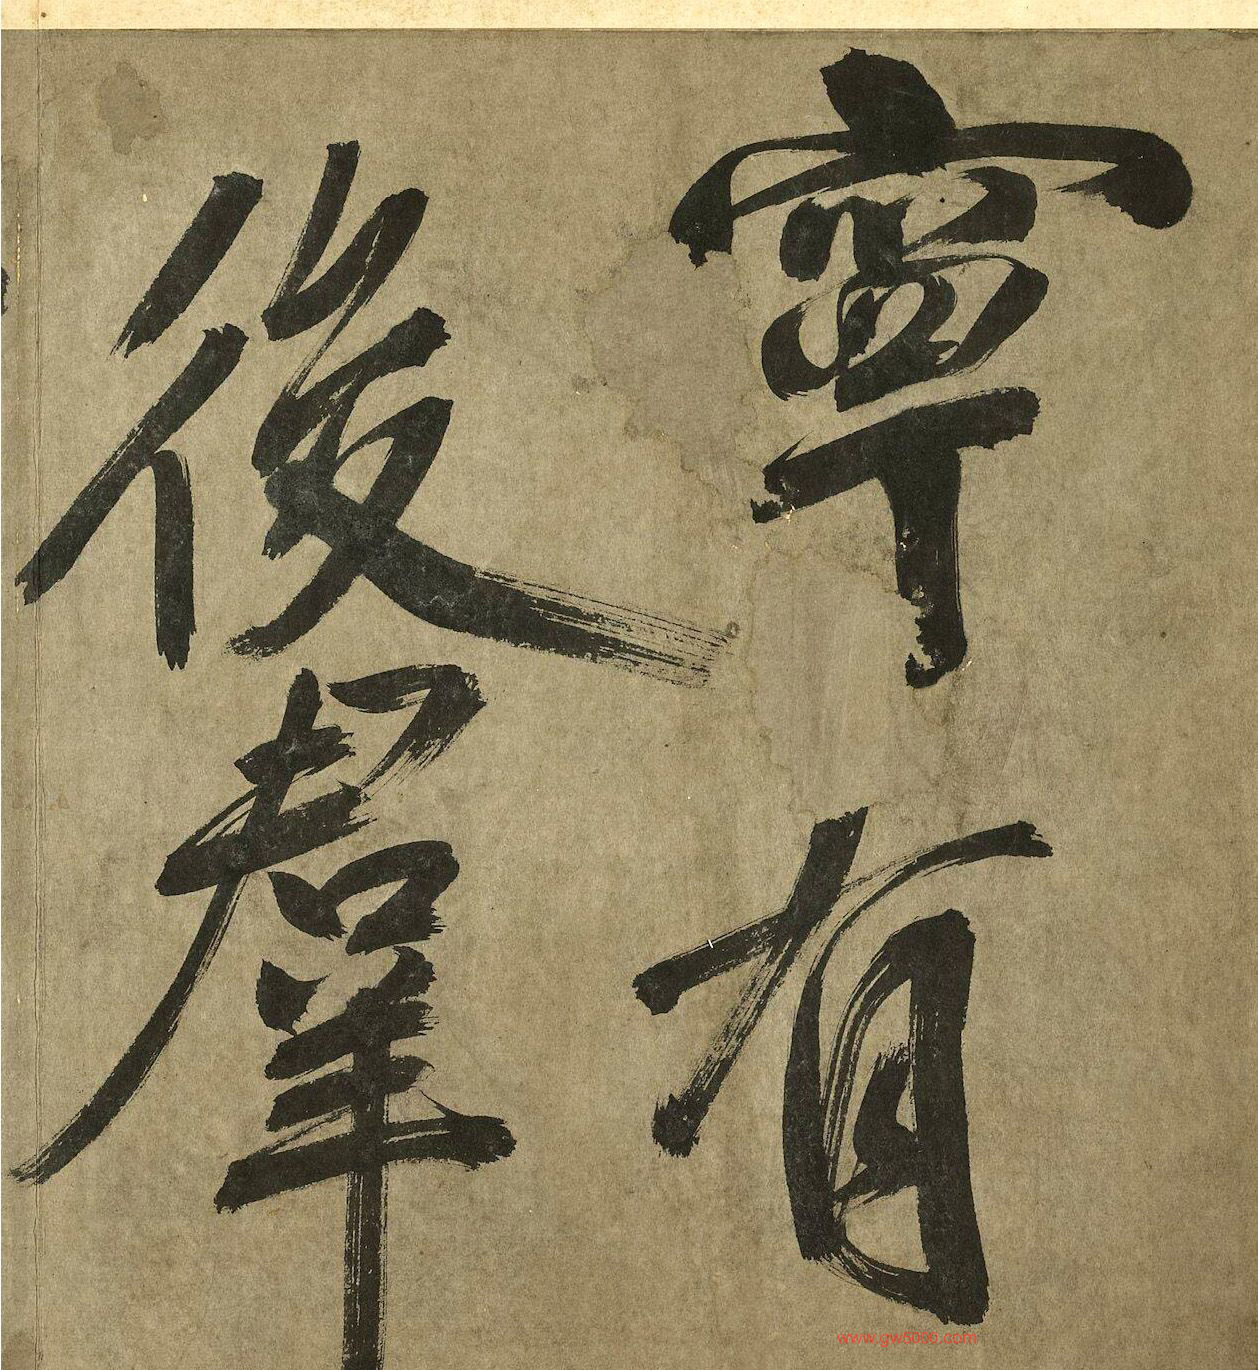 寧有
後羣
www.gw5000.com